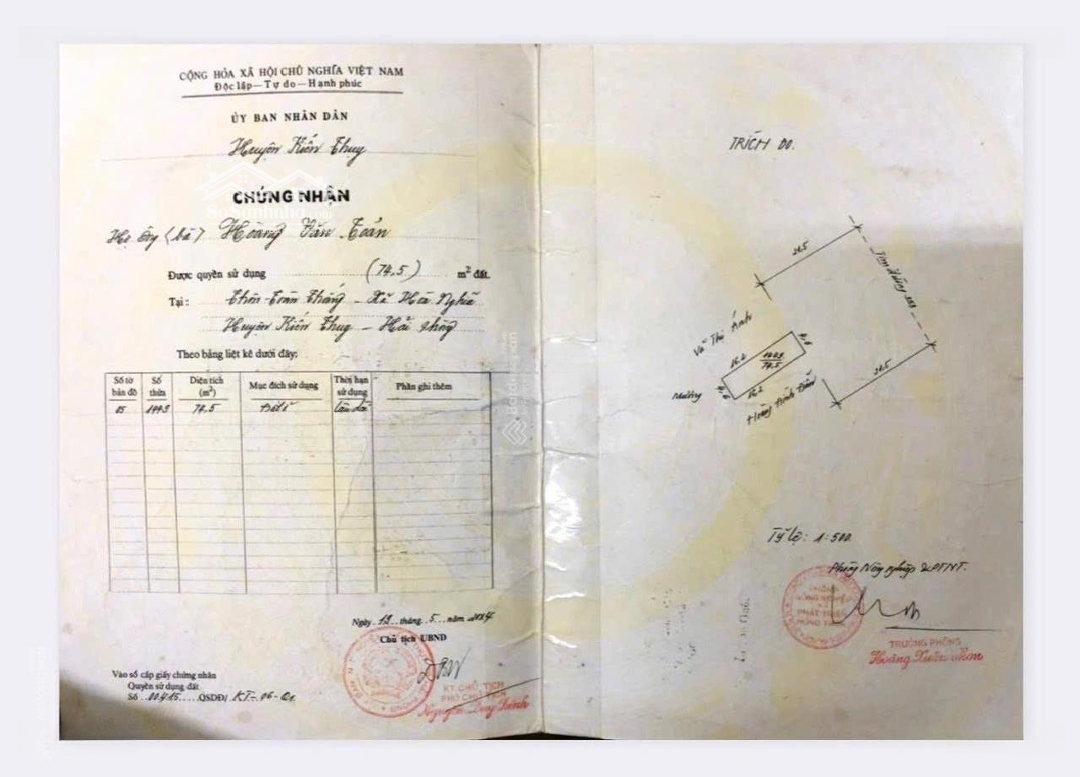 CỘNG HÒA XÃ HỘI CHỦ NGHĨA VIỆT NAM
Độc lập—Tự do—Hạnh phúc
ỦY BAN NHÂN DÂN
Huyện Kiến Thụy
CHỨNG NHẬN
Hộ ông (bà) Hoàng Văn Toản
Được quyền sử dụng (74,5) m² đất.
Tại: Thôn Toàn Thắng - Xã Hòa Nghĩa
Huyện Kiến Thụy - Hải Phòng
Theo bảng liệt kê dưới đây:
Số tờ bản đồ Số thửa Diện tích (m²) Mục đích sử dụng Thời hạn sử dụng Phần ghi thêm
05 74,5 Đất ở Lâu dài
Ngày 12 tháng 5 năm 2004
Chủ tịch UBND
KT CHỦ TỊCH
PHÓ CHỦ TỊCH
Vào sổ cấp giấy chứng nhận
Quyền sử dụng đất
Số 00415 QSDĐ/ KT-06
TRÍCH ĐO.
24,5
Vũ Thị Ánh
16,2
4,6
74,5
Mương
4,6
16,2
24,5
Tỷ lệ: 1:500
Phòng Nông nghiệp &PTNT.
TRƯỞNG PHÒNG